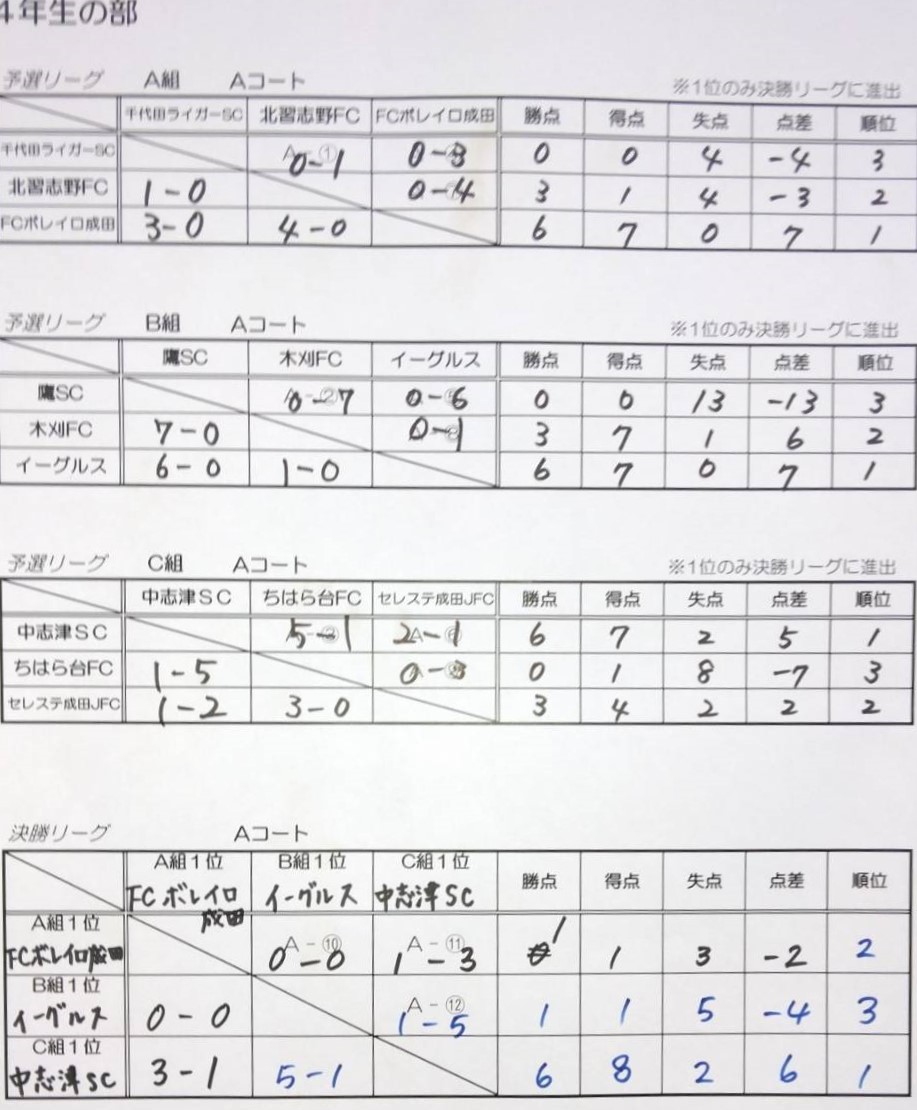 4年生の部
予選リーグ A組 Aコート ※1位のみ決勝リーグに進出
千代田ライガーSC 北習志野FC FCボレイロ成田 勝点 得点 失点 点差 順位
千代田ライガーSC 0-1 0-3 0 0 4 -4 3
北習志野FC 1-0 0-4 3 1 4 -3 2
FCボレイロ成田 3-0 4-0 6 7 0 7 1
予選リーグ B組 Aコート ※1位のみ決勝リーグに進出
鷹SC 木刈FC イーグルス 勝点 得点 失点 点差 順位
鷹SC 0-7 0-6 0 0 13 -13 3
木刈FC 7-0 0-1 3 7 1 6 2
イーグルス 6-0 1-0 6 7 0 7 1
予選リーグ C組 Aコート ※1位のみ決勝リーグに進出
中志津SC ちはら台FC セレステ成田JFC 勝点 得点 失点 点差 順位
中志津SC 5-1 2-1 6 7 2 5 1
ちはら台FC 1-5 0-3 0 1 8 -7 3
セレステ成田JFC 1-2 3-0 3 4 2 2 2
決勝リーグ Aコート
A組1位 B組1位 C組1位 勝点 得点 失点 点差 順位
FCボレイロ成田 イーグルス 中志津SC
A組1位 A-⑩ A-⑪
FCボレイロ成田 0-0 1-3 1 1 3 -2 2
B組1位 A-⑫
イーグルス 0-0 1-5 1 1 5 -4 3
C組1位
中志津SC 3-1 5-1 6 8 2 6 1